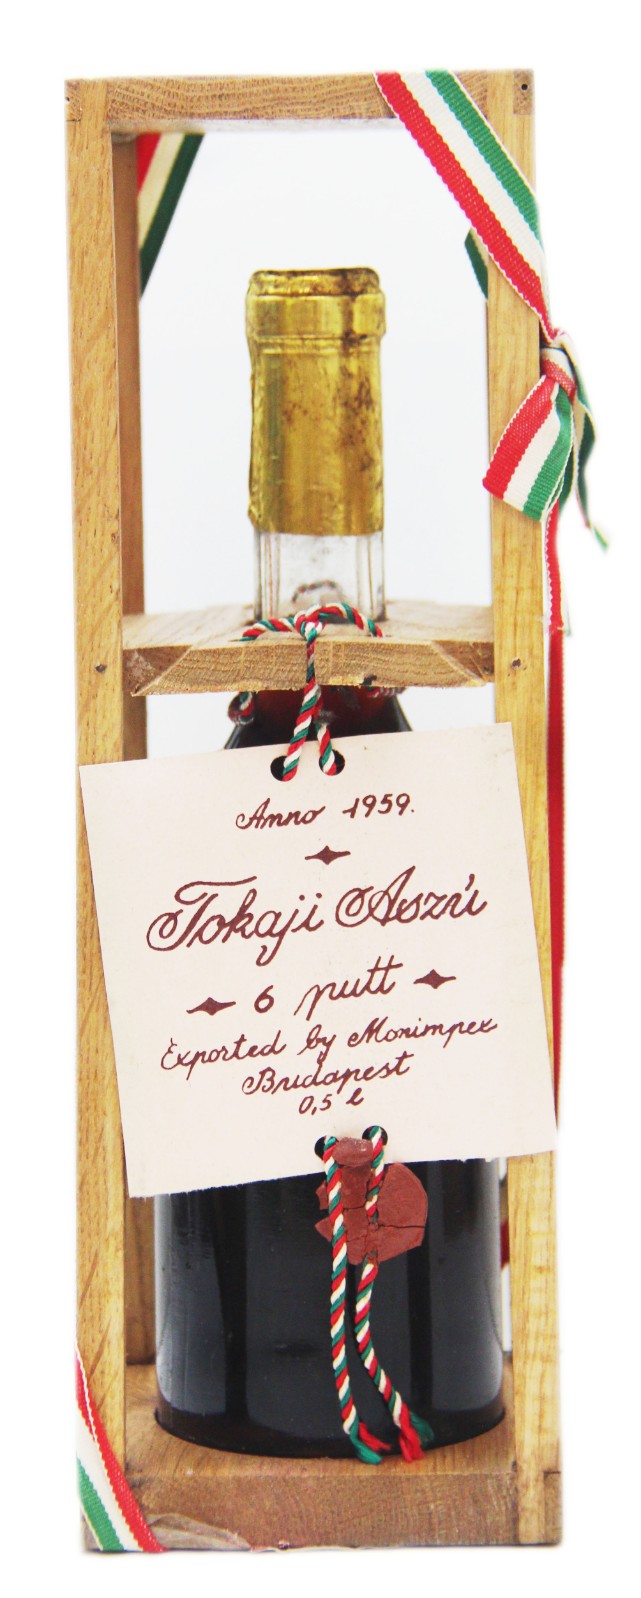 Anno 1959.
Tokaji Aszú
6 putt
Exported by Monimpex
Budapest
0,5 l